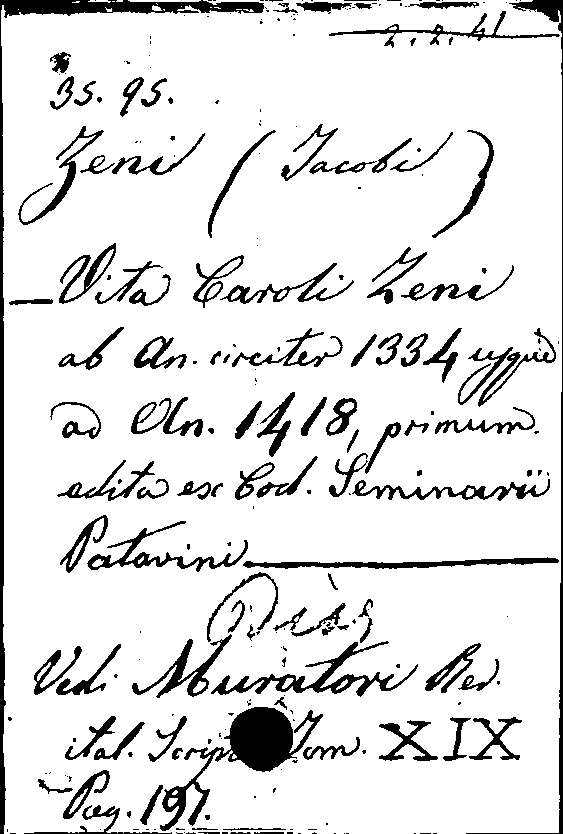 2.2.41
35. 95.
Zeni (Jacobi)
Vita Caroli Zeni
ab An. circiter 1334 usque
ad An. 1418, primum
edita ex Cod. Seminarii
Patavini
Vedi Muratori Rer.
ital. Scrip. Tom. XIX
Pag. 197.